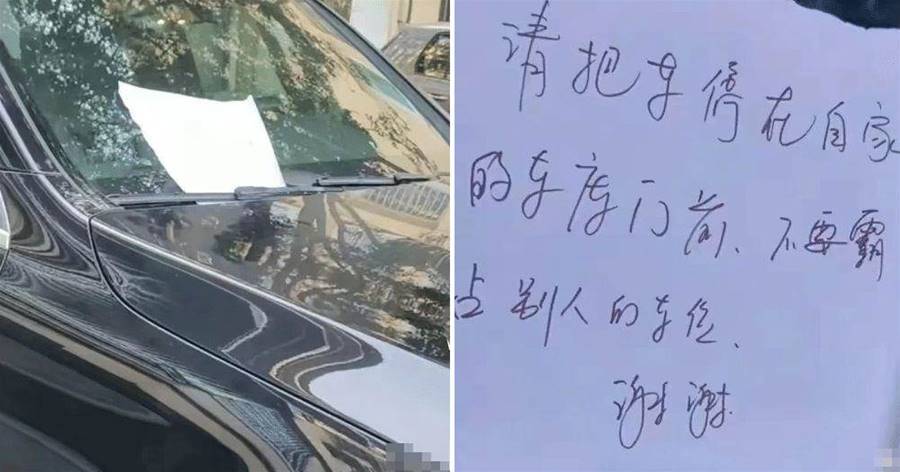 请把车停在自家
的车库门前、不要霸
占别人的车位、
谢谢